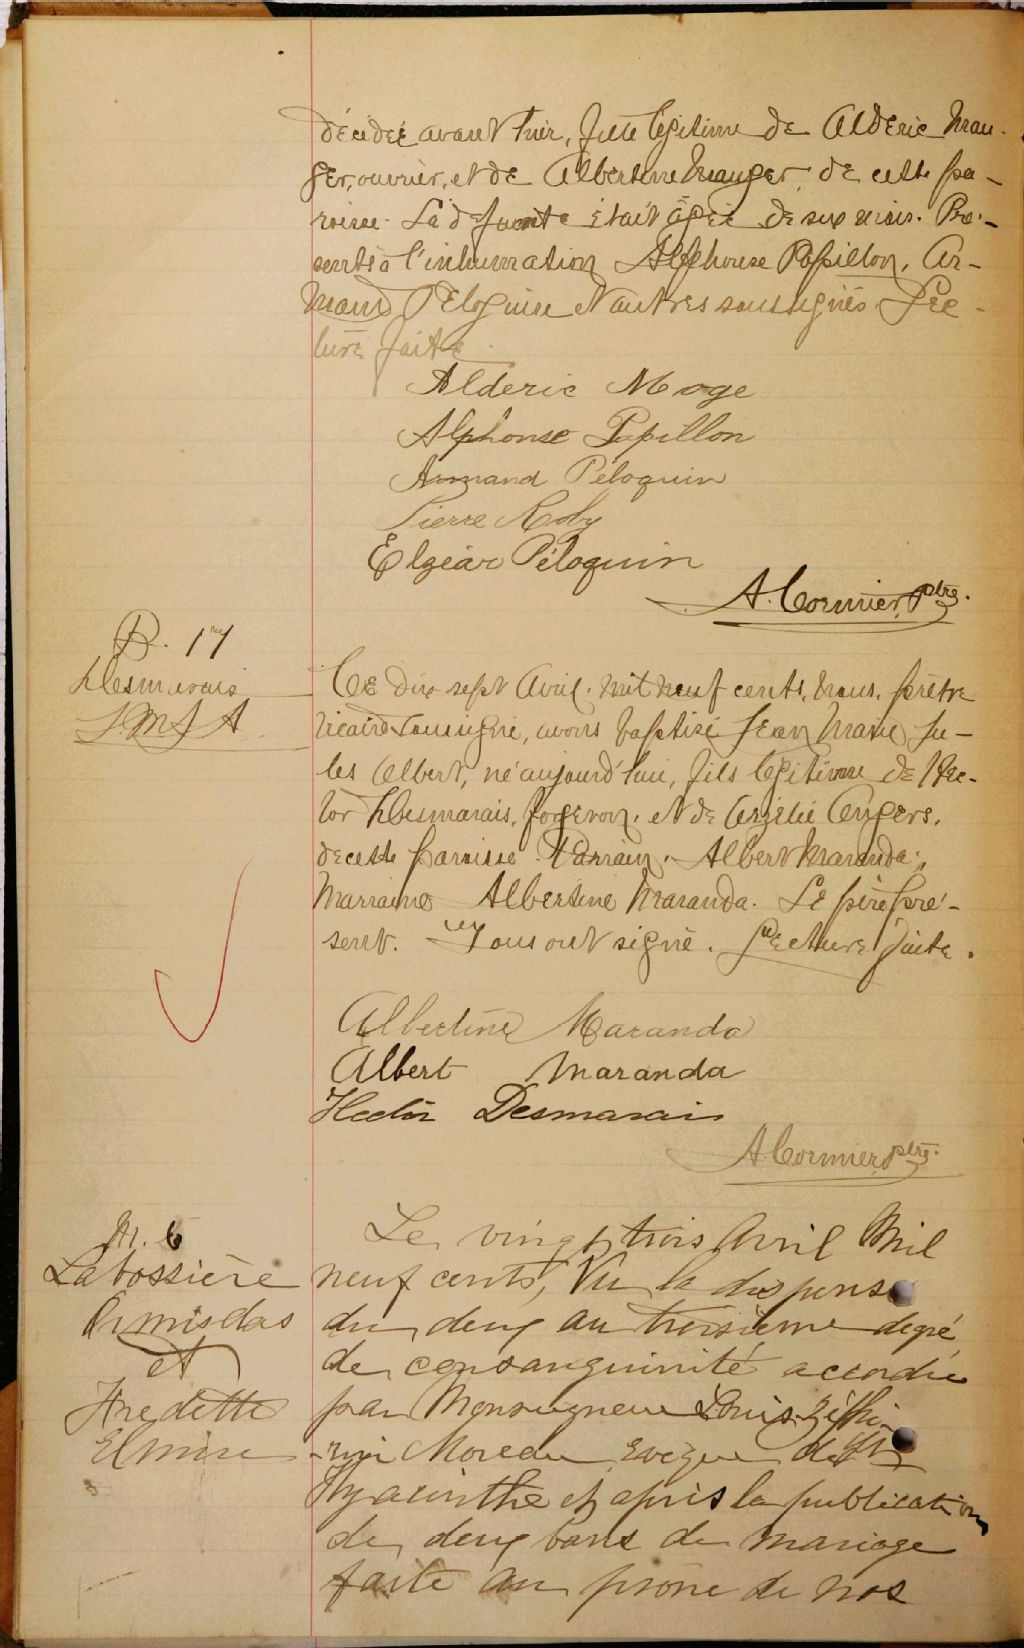 décédée avant hier, fille légitime de Alderic Mau-
ger, ouvrier, et de Albertine Mauger de cette pa-
roisse. La défunte était âgée de six mois. Pré-
sents à l'inhumation Alphonse Papillon, Ar-
mand Péloquin et autres soussignés. Lec-
ture faite.
Alderic Moge
Alphonse Papillon
Armand Péloquin
Pierre Roby
Elzéar Péloquin
A. Cormier, Ptre.
B. 17
Desmarais
J. M. J. A
Ce dix-sept Avril, mil neuf cents, nous, prêtre
vicaire soussigné, avons baptisé Jean Marie Ju-
les Albert, né aujourd'hui, fils légitime de Hec-
tor Desmarais, forgeron, et de Angers,
de cette paroisse. Parrain, Albert Maranda;
Marraine Albertine Maranda. Le père pré-
sent. Tous ont signé. Lecture faite.
Albertine Maranda
Albert Maranda
Hector Desmarais
A. Cormier, ptre.
M. 6
Labossière
Armisdas
et
Fredette
Elmire
Le vingt trois Avril Mil
neuf cents, Vu la dispense
du deux au troisième degré
de consanguinité accordée
par Monseigneur Louis Zéphi-
-rin Moreau Evêque de St
Hyacinthe et après la publication
de deux bans de mariage
faite au prône de nos